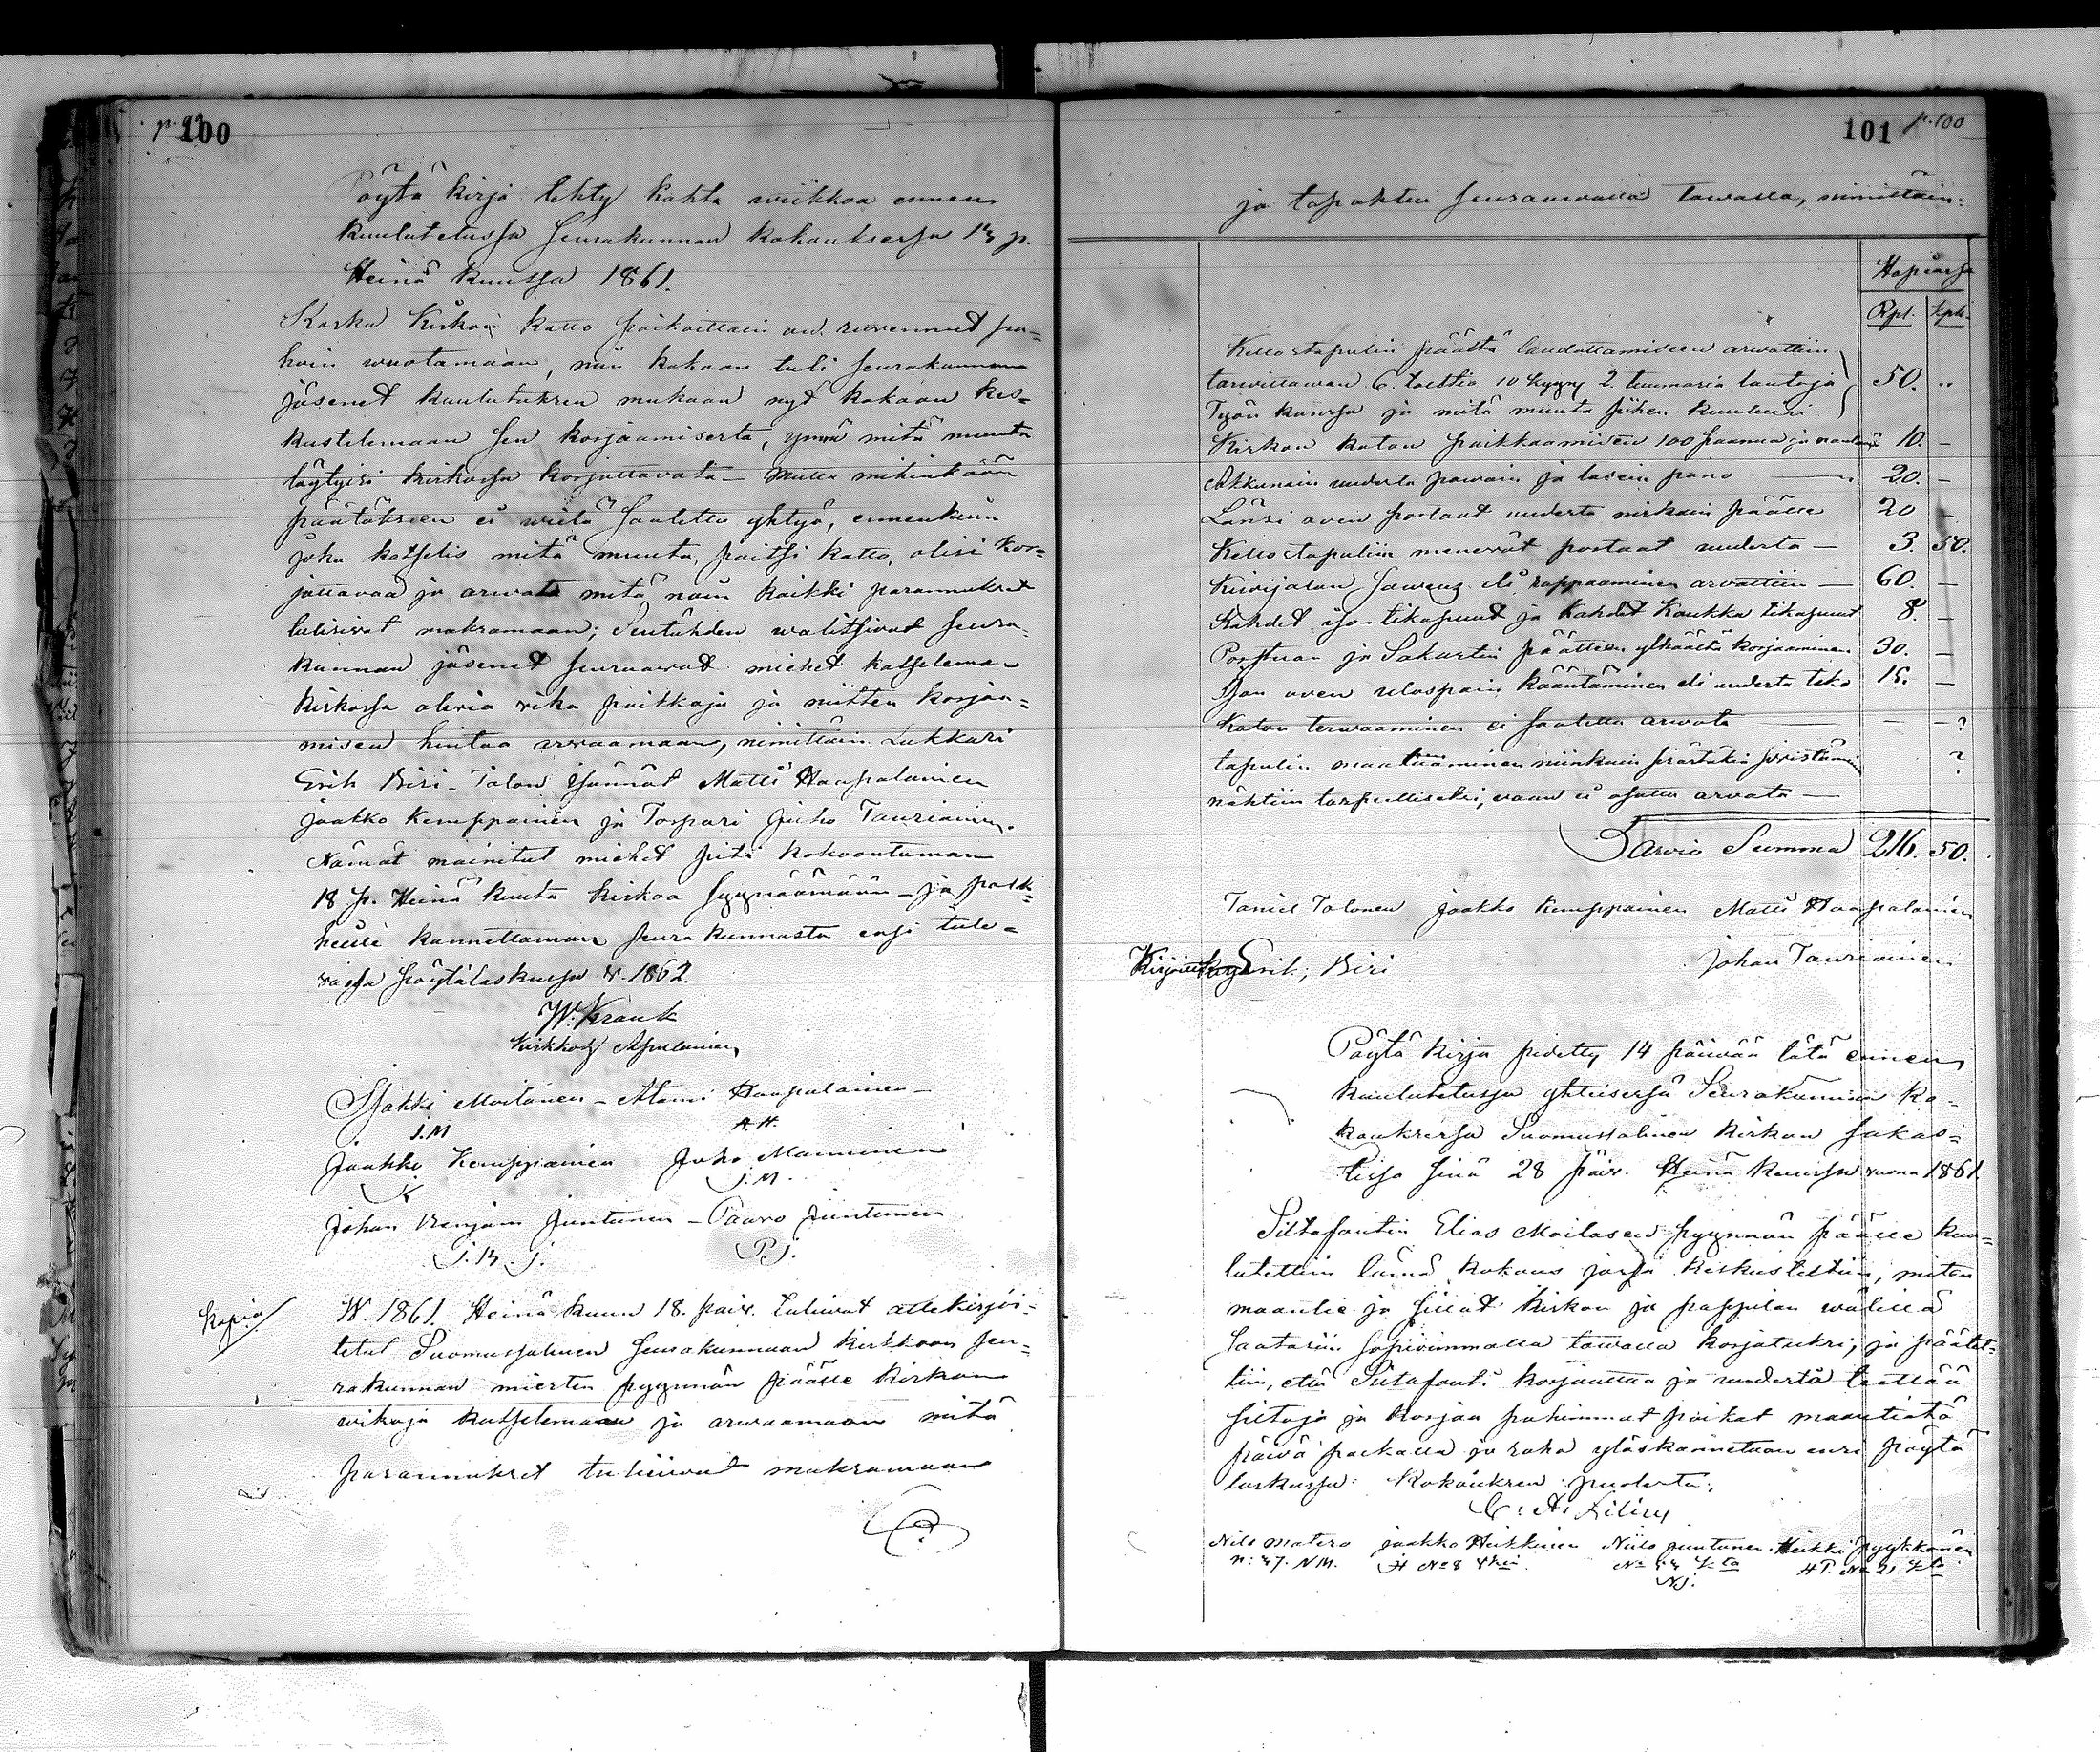 p. 99
100
Pöytä kirja tehty kahta wiikkoa ennen
kuulutetussa seurakunnan kokouksessa 14 p.
Heinä kuussa 1861.
Koska Kirkon katto paikoittain on ruvennut pa=
hoin wuotamaan, niin kokoon tuli seurakunnan
jäsenet kuulutuksen mukaan nyt kokoon kes=
kustelemaan sen korjaamisesta, ynnä mitä muuta
löytyisi kirkossa korjattavata – Mutta mihinkään
päätökseen ei wielä saatettu yhtyä, ennenkuin
joku katselis mitä muuta, paitsi katto, olisi kor=
jattavaa ja arwata mitä näin kaikki parannukset
tulisivat maksamaan; Sentähden walitsivat seura=
kunnan jäsenet seuraawat miehet katseleman
kirkossa olevia vika paikkoja ja niitten korjaa=
misen hintaa arwaamaan, nimittäin Lukkari
Erik Biri – Talon isännät Matti Haapalainen
Jaakko Kemppainen ja Torpari Juho Tauriainen.
Nämät mainitut miehet piti kokoontuman
18 p. Heinä kuuta kirkoa syynäämään – ja palk=
heille kannettaman seura kunnasta ensi tule=
vassa pöytälaskussa w. 1862.
W. Krank
Kirkkoh. Apulainen
Jakki Moilanen – Atami Haapalainen –
J.M A.H.
Jaakko Kemppainen Juho Manninen
JK J.M.
Johan Benjam Juntunen – Paavo Juntunen
J.B.J. P.J.
Kopia
W. 1861. Heinä kuun 18. päiv. tulivat allekirjoi=
tetut Suomussalmen seurakunnan kirkkoon seu=
rakunnan miesten pyynnön päälle kirkon
wikoja katselemaan ja arwaamaan mitä
parannukset tulisivat maksamaan
101
p. 100
ja tapahtui seuraawalla tawalla, nimittäin:
Hopiassa
Rpl. kpk.
Kellostapulin päältä laudottamiseen arwattiin
tarwittawan 6. tolttia 10 kyyn. 2. tuumaria lautoja 50. "
Työn kanssa ja mitä muuta siihen kuuluisi
Kirkon katon paikkaamiseen 100 paanua ja nauloja 10. –
Akkunain uudesta pawain ja lasein pano 20. –
Länsi oven portaat uudesta nirkain päälle 20 –
Kellostapuliin menevät portaat uudesta – 3. 50.
Kivijalan saweus eli rappaaminen arvattiin – 60. –
Kahdet iso-tikapuut ja kahdet Koukku tikapuut 8. –
Porstuan ja Sakastin päätteen ylhäältä korjaaminen 30. –
Ison oven ulospäin kääntäminen eli uudesta teko 15. –
Katon terwaaminen ei saatettu arwata – – ?
tapulin maalaaminen niinkuin ristäkin ?
nähtiin tarpeelliseksi, vaan ei osattu arvata –
Tarvis Summa 216. 50.
Taniel Tolonen Jaakko Kemppainen Matti Haapalainen
Kirjoitti Erik; Biri Johan Tauriainen
Pöytä kirja pidetty 14 päivää tätä ennen
kuulutetussa yhteisessä Seurakunnan ko=
kouksessa Suomussalmen kirkon sakas=
tissa sinä 28 päiv. Heinä kuussa vuona 1861.
Siltafoutin Elias Moilasen pyynnön päälle kuu=
lutettiin tämä kokous jossa keskusteltiin, miten
maantie ja sillat kirkon ja pappilan wälillä
saatasiin sopivimmalla tawalla korjatuksi; ja päätet=
tiin, että Siltafouti korjauttaa ja uudesta teettää
siltoja ja korjaa pahimmat paikat maantiestä
päivä palkalla ja raha ylöskannetaan ensi pöytä
laskussa: Kokouksen puolesta:
C. A. Lilius
Nils Matero Jaakko Heikkinen Niilo Juntunen Heikki Pyykkönen
n: 47. NM. JH No 8 No 44 HP. No 21
NJ.